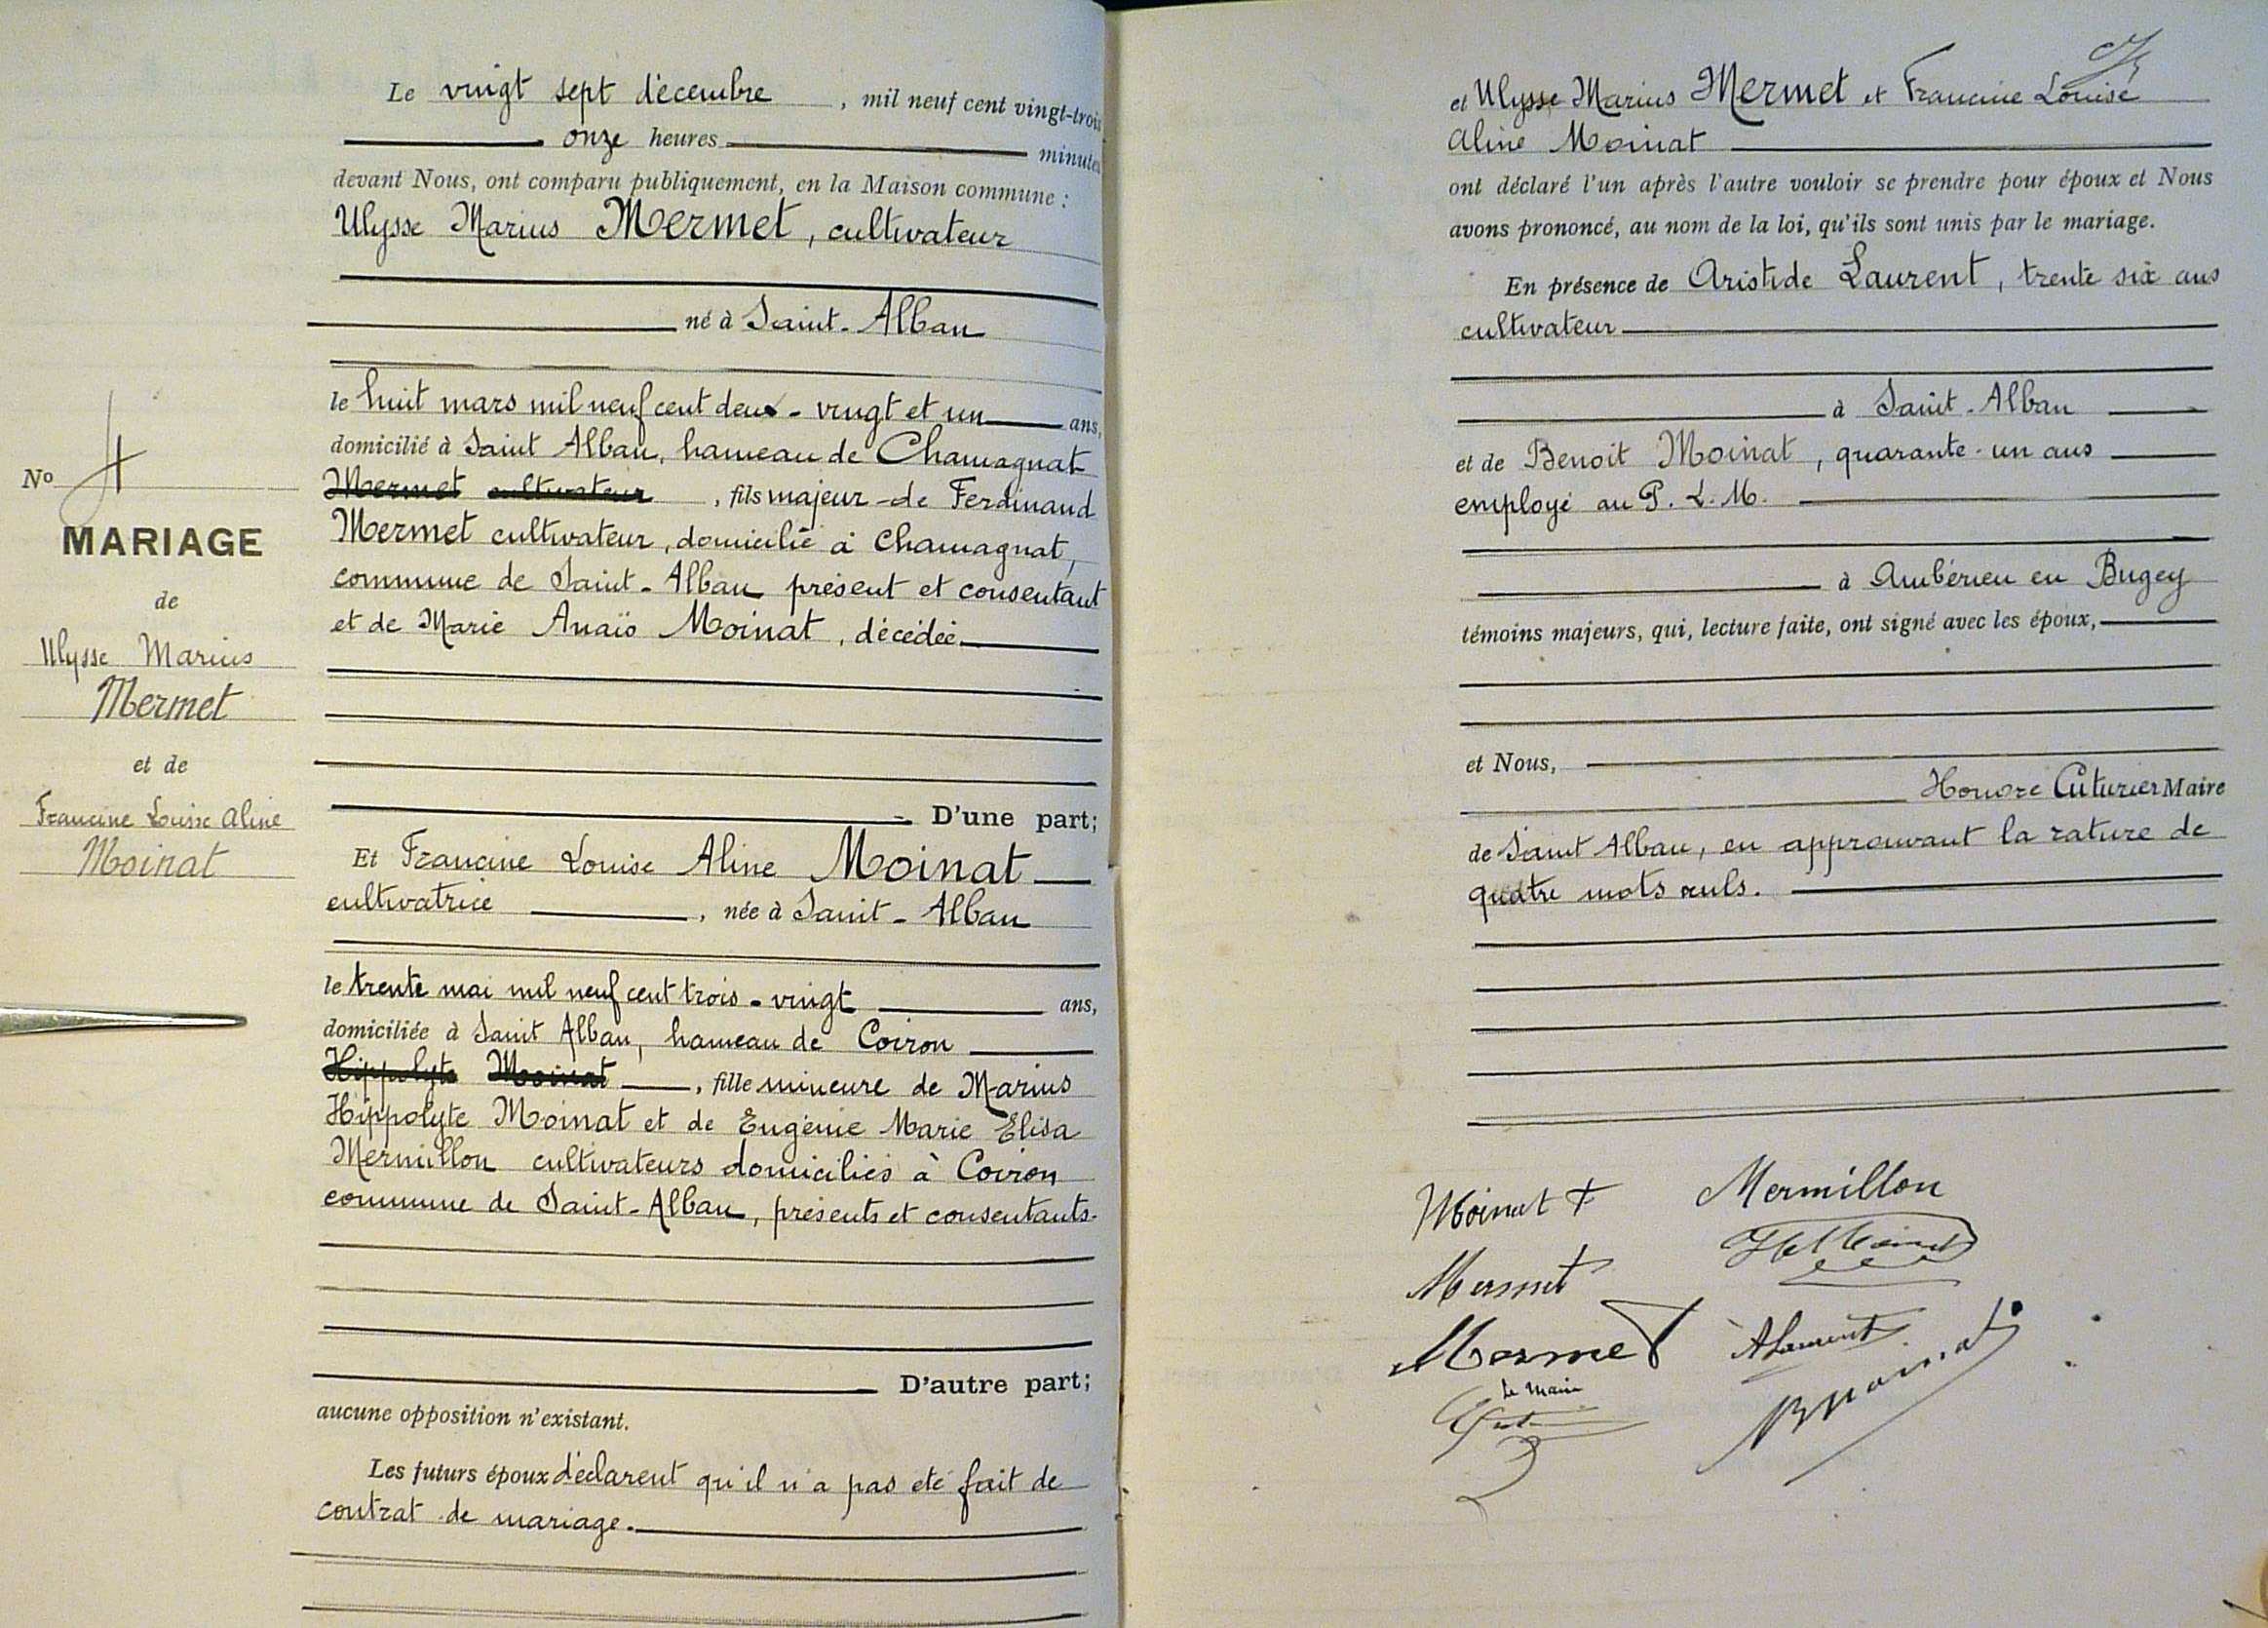 Le vingt sept décembre, mil neuf cent vingt-trois
onze heures minutes
devant Nous, ont comparu publiquement, en la Maison commune :
Ulysse Marius Mermet, cultivateur
né à Saint-Alban
le huit mars mil neuf cent deux - vingt et un ans,
domicilié à Saint Alban, hameau de Chamagnat
Mermet cultivateur, fils majeur de Ferdinand
Mermet cultivateur, domicilié à Chamagnat,
commune de Saint-Alban présent et consentant
et de Marie Anaïs Moinat, décédée
No 4
MARIAGE
de
Ulysse Marius
Mermet
et de
Francine Louise Aline
Moinat
D'une part;
Et Francine Louise Aline Moinat
cultivatrice, née à Saint-Alban
le trente mai mil neuf cent trois - vingt ans,
domiciliée à Saint Alban, hameau de Coiron
Hippolyte Moinat, fille mineure de Marius
Hippolyte Moinat et de Eugénie Marie Elisa
Mermillon cultivateurs domiciliés à Coiron
commune de Saint-Alban, présents et consentants.
D'autre part;
aucune opposition n'existant.
Les futurs époux déclarent qu'il n'a pas été fait de
contrat de mariage.
et Ulysse Marius Mermet et Francine Louise
Aline Moinat
ont déclaré l'un après l'autre vouloir se prendre pour époux et Nous
avons prononcé, au nom de la loi, qu'ils sont unis par le mariage.
En présence de Aristide Laurent, trente six ans
cultivateur
à Saint-Alban
et de Benoit Moinat, quarante-un ans
employé au P. L. M.
à Ambérieu en Bugey
témoins majeurs, qui, lecture faite, ont signé avec les époux,
et Nous,
Honoré Cuturier Maire
de Saint Alban, en approuvant la rature de
quatre mots nuls.
Moinat F Mermillon
Mermet
Mermet ALaurent
Le Maire BMoinat